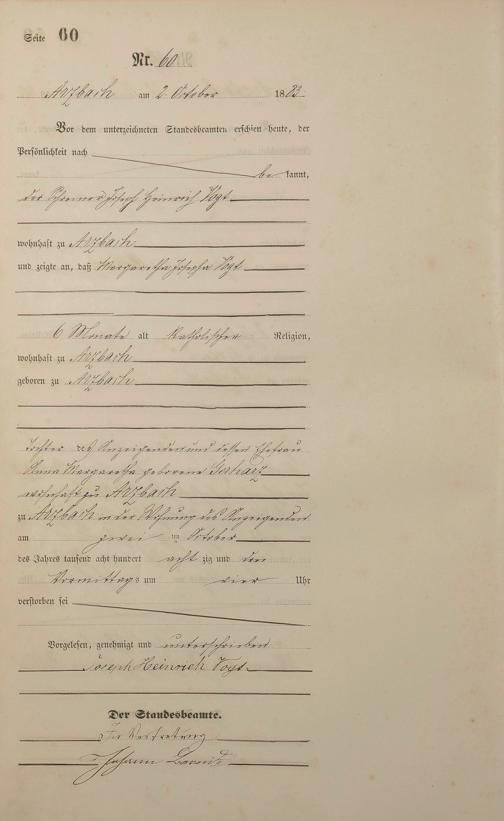 Seite 60
Nr. 60
Arzbach am 2 October 1883
Vor dem unterzeichneten Standesbeamten erschien heute, der
Persönlichkeit nach
be kannt,
der Schreiner Joseph Heinrich Vogt
wohnhaft zu Arzbach
und zeigte an, daß Margaretha Josepha Vogt
6 Monate alt katholischer Religion,
wohnhaft zu Arzbach
geboren zu Arzbach
Tochter des Anzeigenden und dessen Ehefrau
Anna Margaretha geborene Gerharz
wohnhaft zu Arzbach
zu Arzbach in der Wohnung des Anzeigenden
am zwei ten October
des Jahres tausend acht hundert acht zig und drei
Vormittags um vier Uhr
verstorben sei
Vorgelesen, genehmigt und unterschrieben
Joseph Heinrich Vogt
Der Standesbeamte.
In Vertretung
Johann